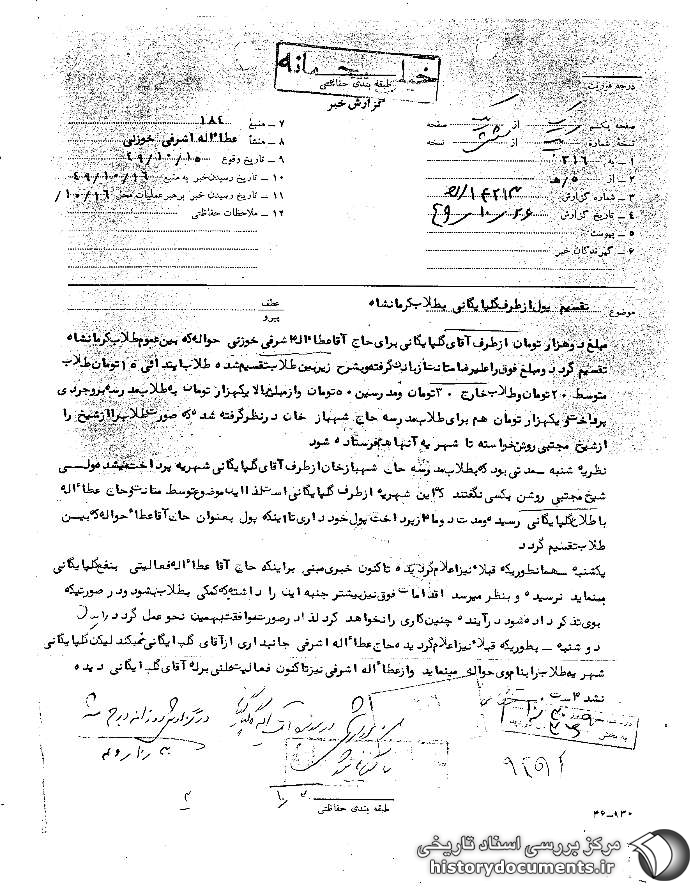 خیلی محرمانه
طبقه بندی حفاظتی
گزارش خبر
درجه فوریت
صفحه یکم از صفحه
نسخه شماره از نسخه
۱ – به ۳۱۶
۲ – از ۵/ه
۳ – شماره گزارش
۴ – تاریخ گزارش
۵ – پیوست
۶ – گیرندگان خبر
۷ – منبع ۱۸۴
۸ – منشأ عطاءاله اشرفی خوزنی
۹ – تاریخ وقوع ۴۹/۱۰/۱۵
۱۰ – تاریخ رسیدن خبر به منبع ۴۹/۱۰/۱۶
۱۱ – تاریخ رسیدن خبر برهبر عملیات محل ۱۰/۱۶/
۱۲ – ملاحظات حفاظتی
موضوع تقسیم پول از طرف گلپایگانی بطلاب کرمانشاه
عطف
پیرو
مبلغ دوهزار تومان از طرف آقای گلپایگانی برای حاج آقا عطاءاله اشرفی خوزنی حواله که بین عموم طلاب کرمانشاه
تقسیم گردد و مبلغ فوق را علیرضا متانت از بانک گرفته و بشرح زیر بین طلاب تقسیم شده طلاب ابتدائی ۱۵ تومان طلاب
متوسط ۲۰ تومان و طلاب خارج ۳۰ تومان و مدرسین ۵۰ تومان و از مبلغ بالا یکهزار تومان به طلاب مدرسه بروجردی
پرداخت و یکهزار تومان هم برای طلاب مدرسه حاج شهباز خان در نظر گرفته شده که صورت طلاب را از شیخ
از شیخ مجتبی روشن خواسته تا شهریه آنها هم فرستاده شود
نظریه شنبه – مدتی بود که بطلاب مدرسه حاج شهبازخان از طرف آقای گلپایگانی شهریه پرداخت میشد ولی
شیخ مجتبی روشن بکسی نگفتند که این شهریه از طرف گلپایگانی است لذا این موضوع توسط متانت و حاج عطاءاله
باطلاع گلپایگانی رسیده و مدت دو ماه از پرداخت پول خودداری تا اینکه پول بعنوان حاج آقا عطاءاله حواله که بین
طلاب تقسیم گردد
یکشنبه – همانطوریکه قبلا نیز اعلام گردیده تاکنون خبری مبنی بر اینکه حاج آقا عطاءاله فعالیتی بنفع گلپایگانی
مینماید نرسیده و بنظر میرسد اقدامات فوق نیز بیشتر جنبه این را داشته که کمکی بطلاب بشود و در صورتیکه
بوی تذکر داده شود در آینده چنین کاری را نخواهد کرد لذا در صورت موافقت بهمین نحو عمل گردد
دوشنبه – بطوریکه قبلا نیز اعلام گردیده حاج عطاءاله اشرفی جانبداری از آقای گلپایگانی نمیکند لیکن گلپایگانی
شهریه طلاب را بنام وی حواله مینماید و از عطاءاله اشرفی نیز تاکنون فعالیت علنی برله آقای گلپایگانی دیده
نشده است
در گزارش روزانه درج شد
طبقه بندی حفاظتی
۴۶–۹۳۰
مرکز بررسی اسناد تاریخی
historydocuments.ir